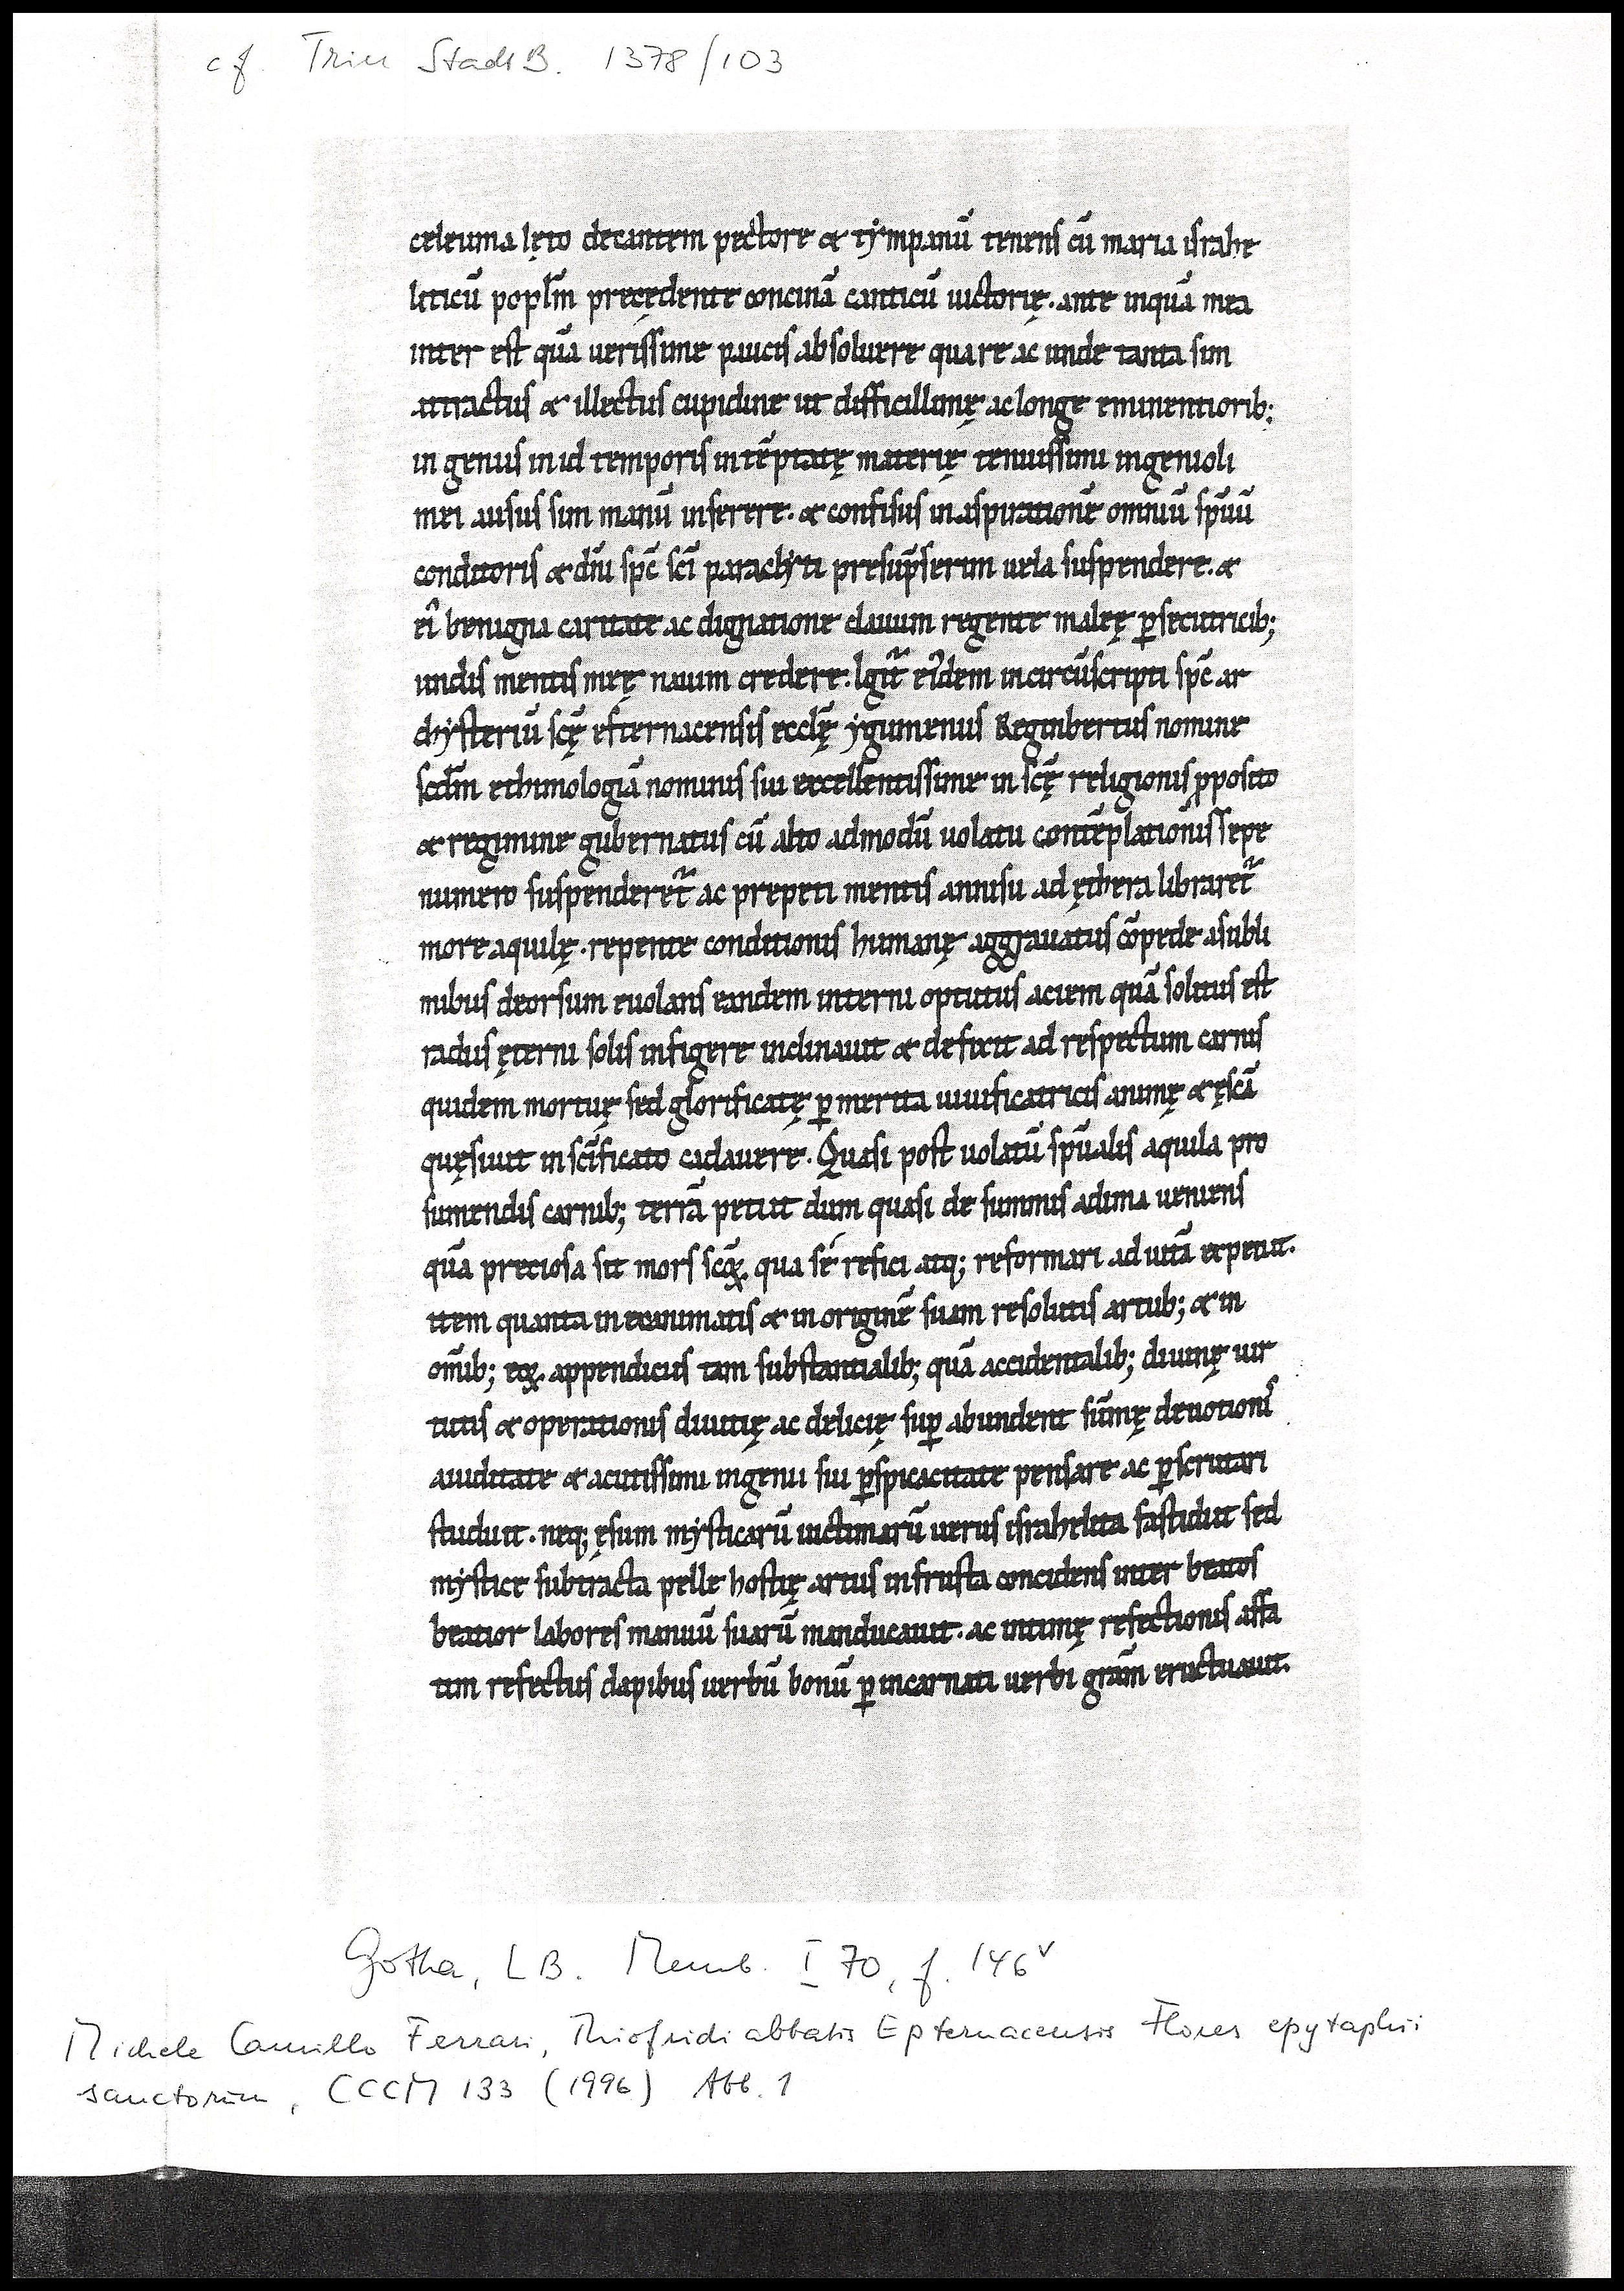 cf. Trier StadtB. 1378/103
celeuma lęto decantem pectore & tẏmpanū tenens cū maria israhe
liticū popl̄m precędente concinā canticū uictorię. ante inquā mea
inter est quā uerissime paucis absoluere quare ac unde tanta sim
attractus & illectus cupidine ut difficillimę ac longe eminentiorib;
in genus in id temporis intēptatę materię tenuissimi ingenioli
mei ausus sim manū inserere. & confisus in aspirationē omniū sp̄uū
conditoris & dn̄i sp̄c sc̄i paraclẏti presūpserim uela suspendere. &
ei benigna caritate ac dignatione clauum regente maleę p̱secutricib;
undis mentis meę nauim credere. Igit̄ eidem incircūscripti sp̄c ar
chẏsteriū sc̄ę efternacensis eccl̄ę ẏgumenus Reginbertus nomine
scd̄m ethimologiā nominis sui excellentissime in sc̄ę religionis pposito
& regimine gubernatus cū alto admodū uolatu contēplationis sepe
numero suspenderet̄ ac prepeti mentis annisu ad ęthera libraret̄
more aquilę. repente conditionis humanę aggrauatus cōpede a subli
mibus deorsum euolans eandem interni optutus aciem quā solitus est
radiis ęterni solis infigere inclinauit & defixit ad respectum carnis
quidem mortuę sed glorificatę p̱ merita uiuificatricis animę & ęscā
quęsiuit in sc̄ificato cadauere. Quasi post uolatū sp̄ualis aquila pro
sumendis carnib; terrā petiit dum quasi de summis ad ima ueniens
quā preciosa sit mors scōꝝ. qua se refici atq; reformari ad uitā expetiit.
item quanta in exanimatis & in originē suam resolutis artub; & in
om̄ib; eoꝝ. appendiciis tam substantialib; quā accidentalib; diuinę uir
tutis & operationis diuitię ac delicię sup̱ abundent sūmę deuotionis
auiditate & acutissimi ingenii sui p̱spicacitate pensare ac p̱scrutari
studuit. neq; ęsum mẏsticarū uictimarū uerus israhelita fastidiit sed
mẏstice subtracta pelle hostię artus in frusta concidens inter beatos
beatior labores manuū suarū manducauit. ac intimę refectionis affa
tim refectus dapibus uerbū bonū p̱ incarnati uerbi grām eructuauit.
Gotha, LB. Memb. I 70, f. 146v
Michele Camillo Ferrari, Thiofridi abbatis Epternacensis Flores epytaphii
sanctorum, CCCM 133 (1996) Abb. 1